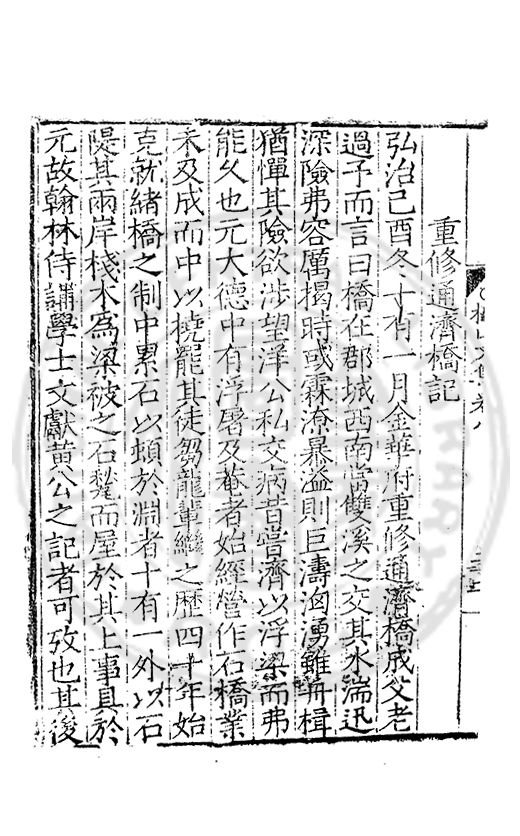 重修通濟橋記
弘治己酉冬十有一月金華府重修通濟橋成父老
過予而言曰橋在郡城西南當雙溪之交其水湍迅
深險弗容厲揭時或霖潦暴溢則巨濤洶湧雖舟楫
猶憚其險欲涉望洋公私交病昔嘗濟以浮梁而弗
能久也元大德中有浮屠及菴者始經營作石橋業
未及成而中以撓罷其徒芻龍輩繼之歴四十年始
克就緒橋之制中累石以頓於淵者十有一外以石
隄其兩岸棧木為梁被之石甃而屋於其上事具於
元故翰林侍講學士文獻黃公之記者可攷也其後